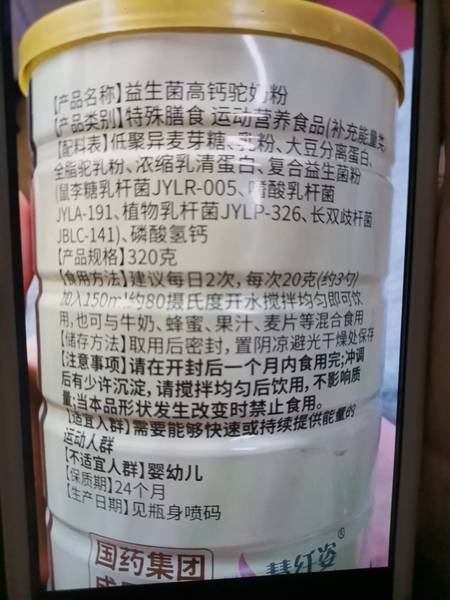 【产品名称】益生菌高钙驼奶粉
【产品类别】特殊膳食 运动营养食品(补充能量类)
【配料表】低聚异麦芽糖、乳粉、大豆分离蛋白、
全脂驼乳粉、浓缩乳清蛋白、复合益生菌粉
(鼠李糖乳杆菌JYLR-005、嗜酸乳杆菌
JYLA-191、植物乳杆菌JYLP-326、长双歧杆菌
JBLC-141)、磷酸氢钙
【产品规格】320克
【食用方法】建议每日2次，每次20克(约3勺)
加入150ml约80摄氏度开水搅拌均匀即可饮
用，也可与牛奶、蜂蜜、果汁、麦片等混合食用
【储存方法】取用后密封，置阴凉避光干燥处保存
【注意事项】请在开封后一个月内食用完;冲调
后有少许沉淀，请搅拌均匀后饮用，不影响质
量;当本品形状发生改变时禁止食用。
【适宜人群】需要能够快速或持续提供能量的
运动人群
【不适宜人群】婴幼儿
【保质期】24个月
【生产日期】见瓶身喷码
国药集团
纤姿®